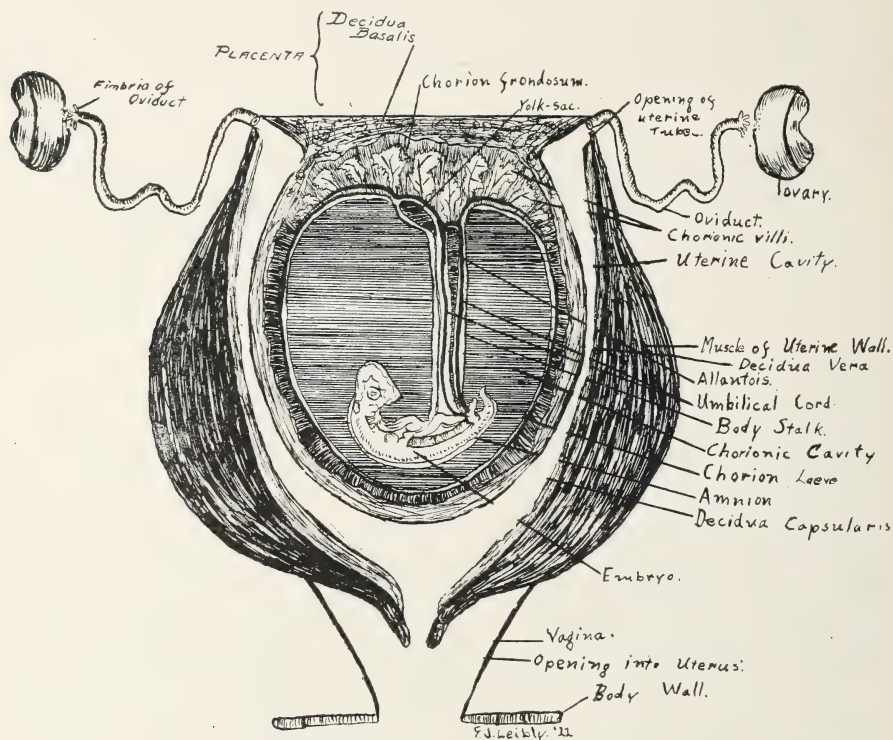 Decidua
Basalis
PLACENTA
Fimbria of
Oviduct
Chorion Frondosum.
Yolk-sac.
Opening of
Uterine
Tube.
Ovary.
Oviduct.
Chorionic villi.
Uterine Cavity.
Muscle of Uterine Wall.
Decidua Vera
Allantois.
Umbilical Cord.
Body Stalk.
Chorionic Cavity
Chorion Laeve
Amnion
Decidua Capsularis
Embryo.
Vagina.
Opening into Uterus.
Body Wall.
F.J. Leibly. '22